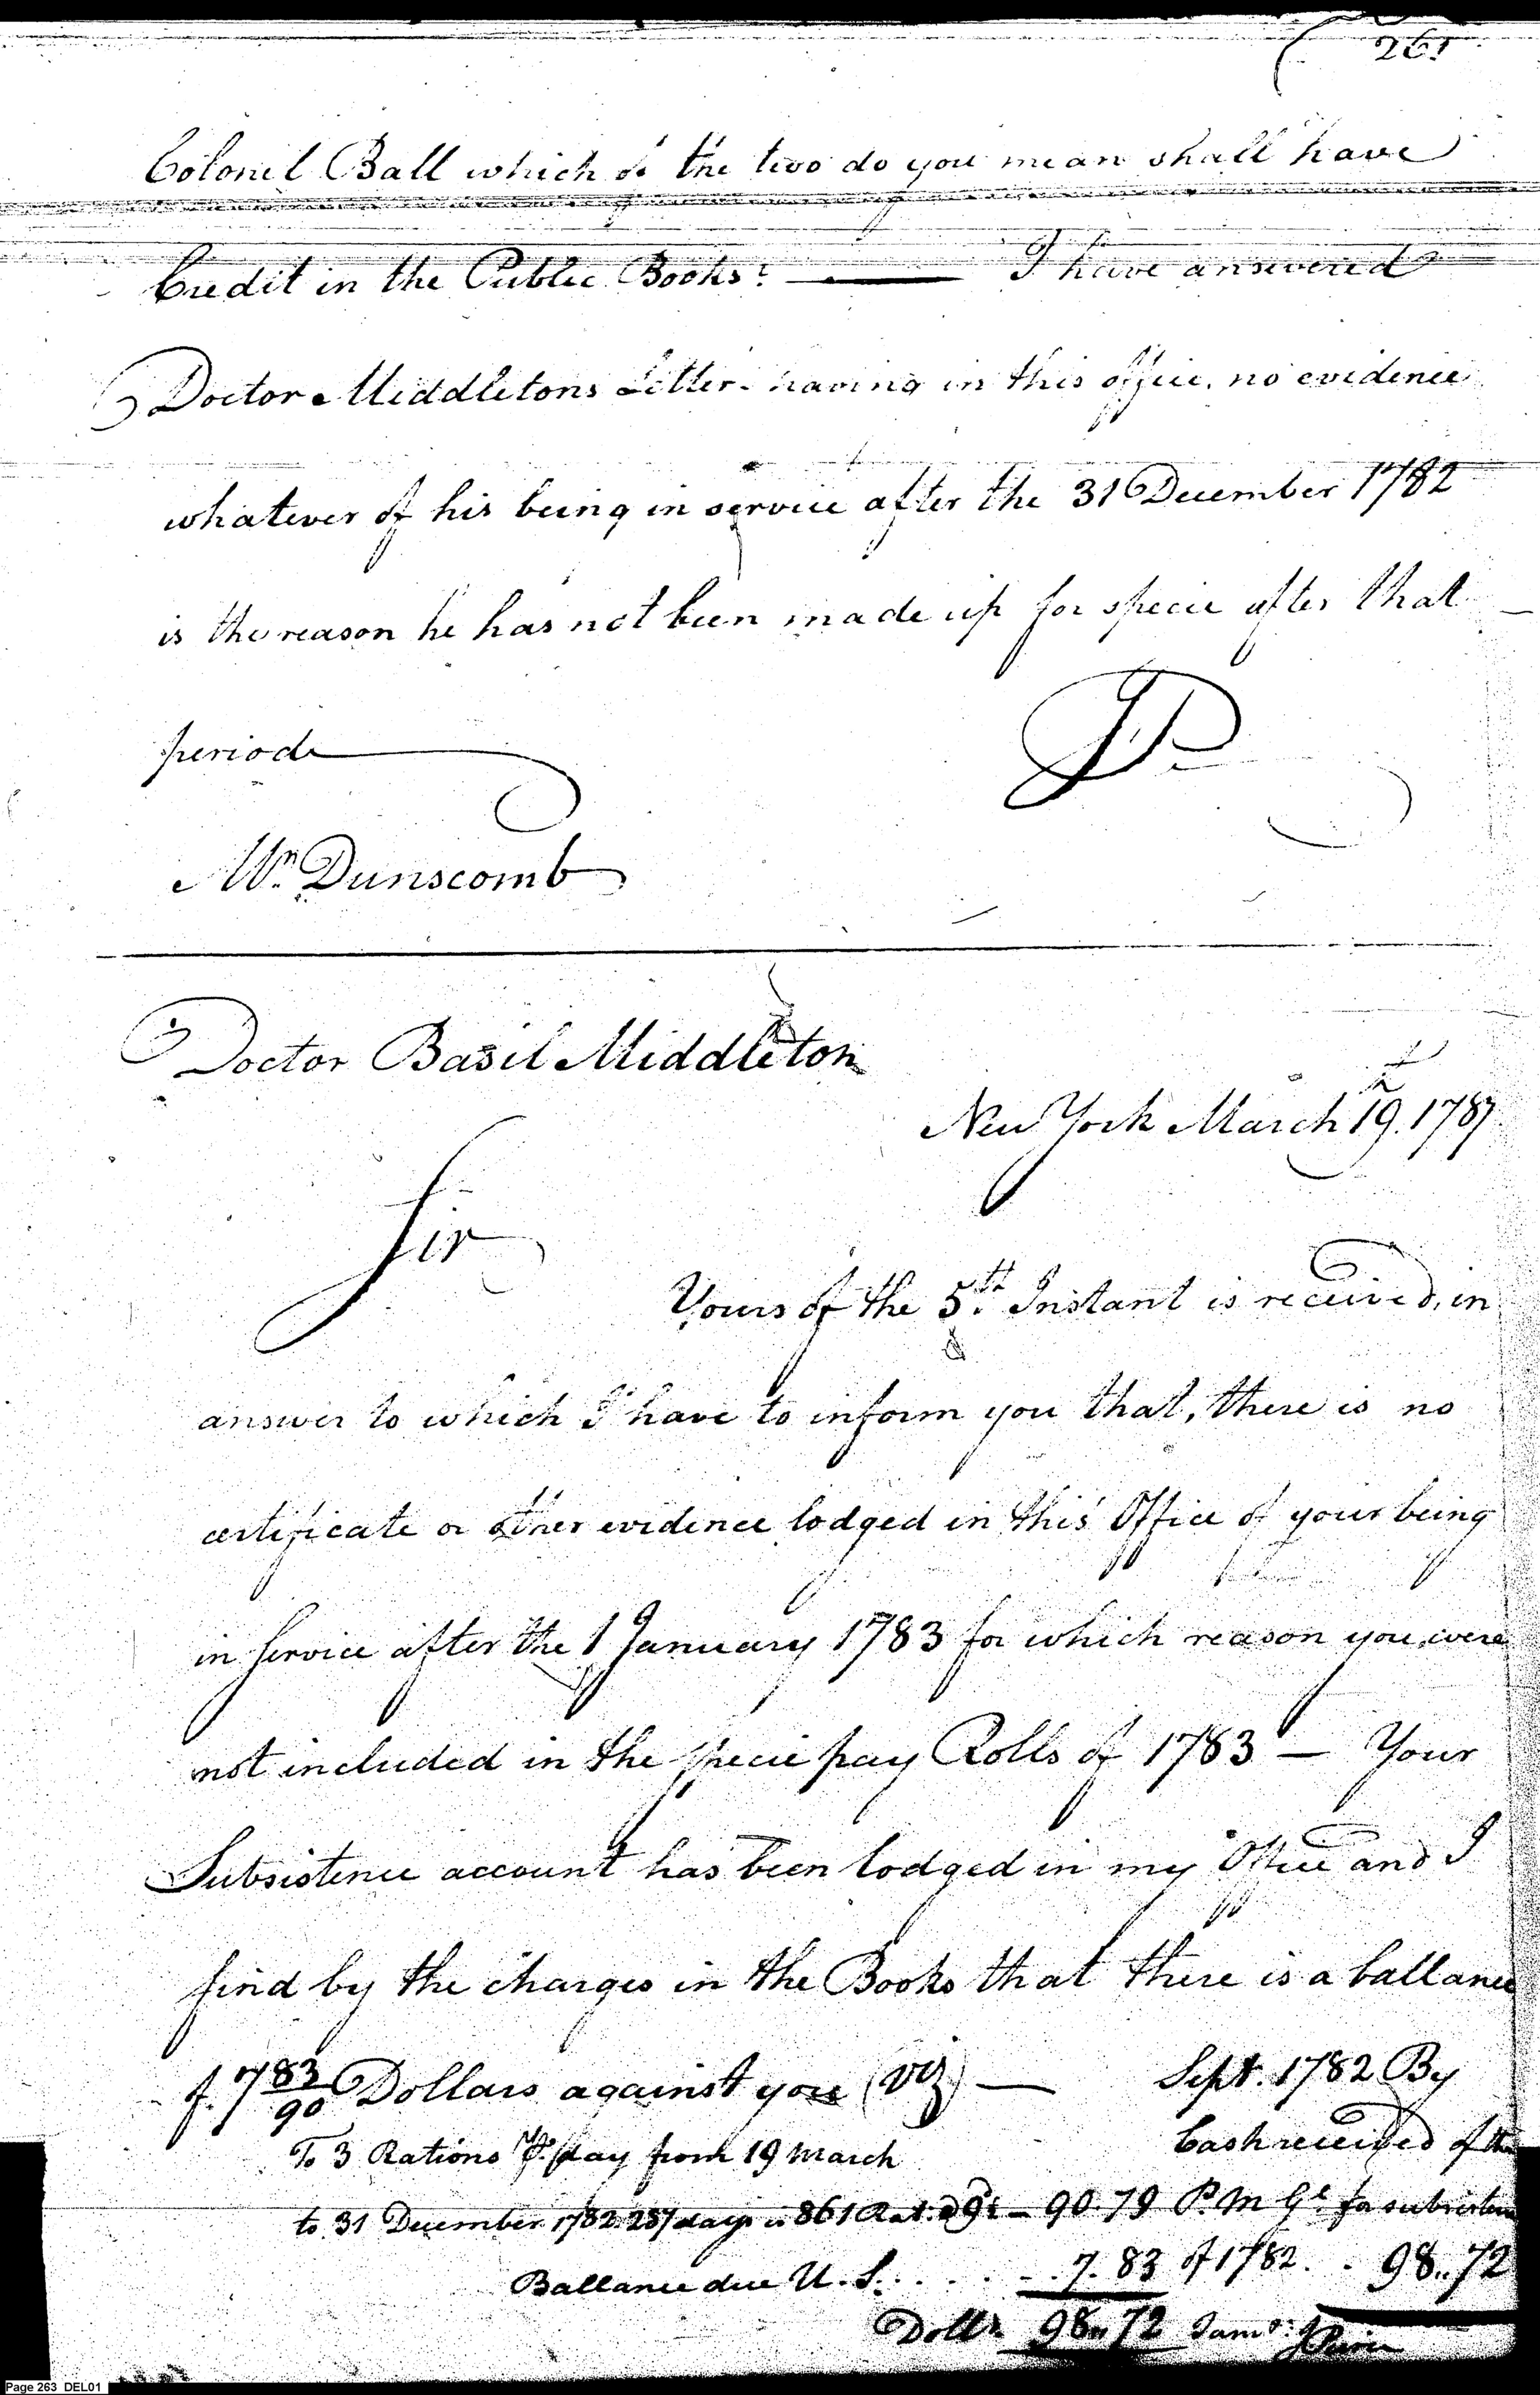 261
Colonel Ball which of the two do you mean shall have
Credit in the Public Books? — I have answered
Doctor Middletons Letter. having in this office, no evidence
whatever of his being in service after the 31 December 1782
is the reason he has not been made up for specie after that
period
JP
Mr. Dunscomb
Doctor Basil Middleton
New York March 19. 1787
Sir
Yours of the 5th Instant is received, in
answer to which I have to inform you that, there is no
certificate or other evidence lodged in this Office of your being
in Service after the 1 January 1783 for which reason you were
not included in the specie pay Rolls of 1783 — Your
Subsistence account has been lodged in my Office and I
find by the charges in the Books that there is a ballance
of 7 83/90 Dollars against you (viz) — Sept. 1782 By
To 3 Rations pr. day from 19 March Cash received of the
to 31 December 1782 287 days is 861 Rat. @ 9 — 90.79 P. M Gl for subsistence
Ballance due U. S. . . . . 7. 83 of 1782 . . 98..72
Dolls 98..72
Page 263 DEL01